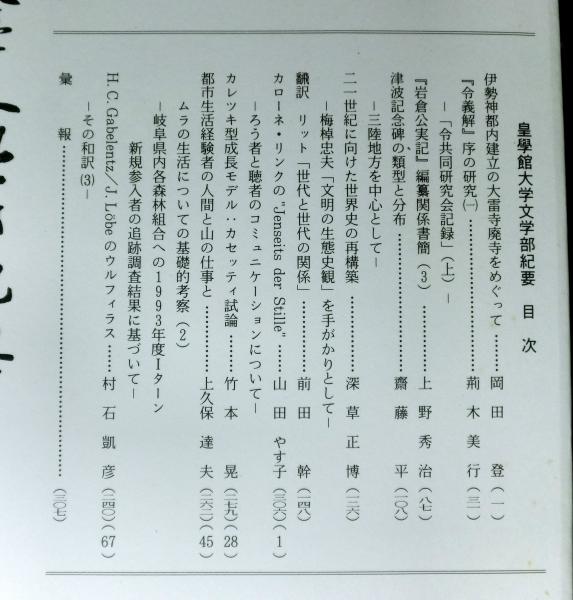 皇學館大学文学部紀要　目次
伊勢神都内建立の大雷寺廃寺をめぐって…………岡田　登（一）
『令義解』序の研究㈠…………荊木美行（三一）
―「令共同研究会記録」（上）―
『岩倉公実記』編纂関係書簡（３）…………上野秀治（八七）
津波記念碑の類型と分布…………齋藤　平（一〇八）
―三陸地方を中心として―
二一世紀に向けた世界史の再構築…………深草正博（一二六）
―梅棹忠夫「文明の生態史観」を手がかりとして―
飜訳　リット「世代と世代の関係」…………前田　幹（一四八）
カローネ・リンクの"Jenseits der Stille"……山田やす子（三〇六）（1）
―ろう者と聴者のコミュニケーションについて―
カレツキ型成長モデル：カセッティ試論……竹本　晃（二七九）（28）
都市生活経験者の人間と山の仕事と…………上久保達夫（二六二）（45）
ムラの生活についての基礎的考察（2）
―岐阜県内各森林組合への1993年度Iターン
新規参入者の追跡調査結果に基づいて―
H. C. Gabelentz／J. Löbeのウルフィラス……村石凱彦（二四〇）（67）
―その和訳⑶―
彙　報……………………（三〇七）